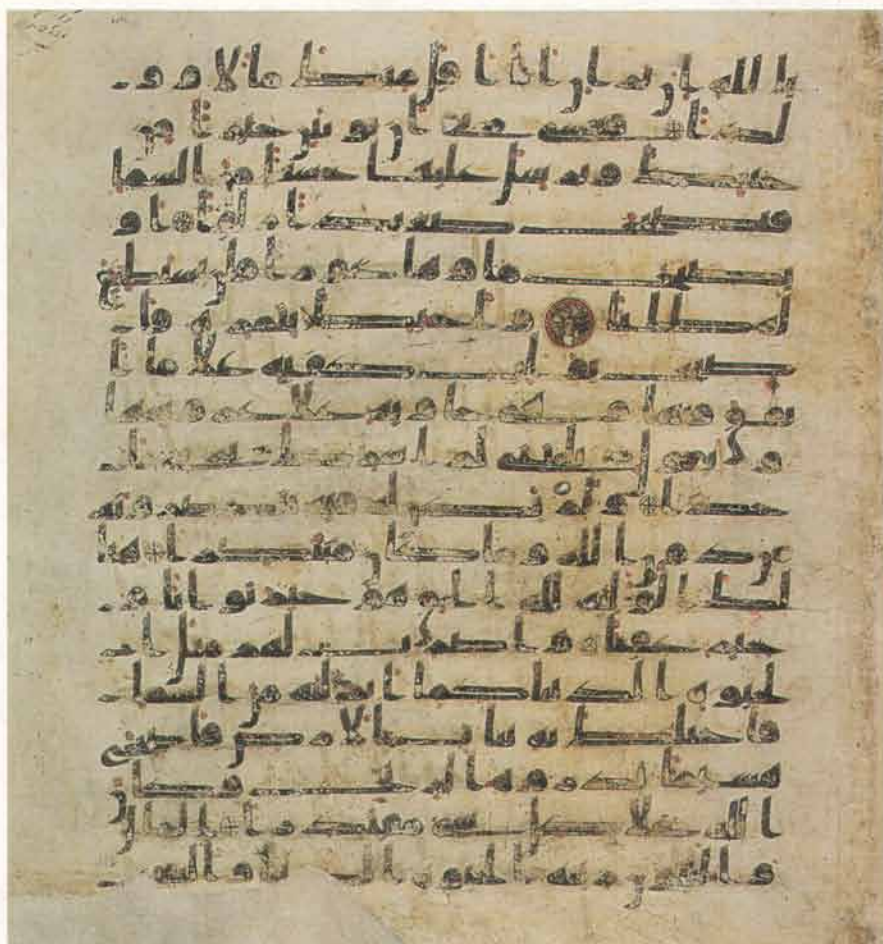 بالله ان ترن انا اقل منك مالا وو
لدا فعسى ربي ان يوتين خيرا من
جنتك ويرسل عليها حسبنا من السما
فتصبح صعيدا زلقا او
يصبح ماوها غورا فلن تستطيع
له طلبا واحيط بثمره فا
صبح يقلب كفيه على ما ا
نفق فيها وهي خاويه على عروشها
ويقول يليتني لم اشرك بربي ا
حدا ولم تكن له فيه ينصرونه
من دون الله وما كان منتصرا هنا
لك الوليه لله الحق هو خير ثوابا و
خير عقبا واضرب لهم مثل ا
لحيوه الدنيا كما انزلنه من السما
فاختلط به نبات الارض فاصبح
هشيما تذروه الريح وكان
الله على كل شي مقتدرا المال
والبنون زينه الحيوه الدنيا والبـ